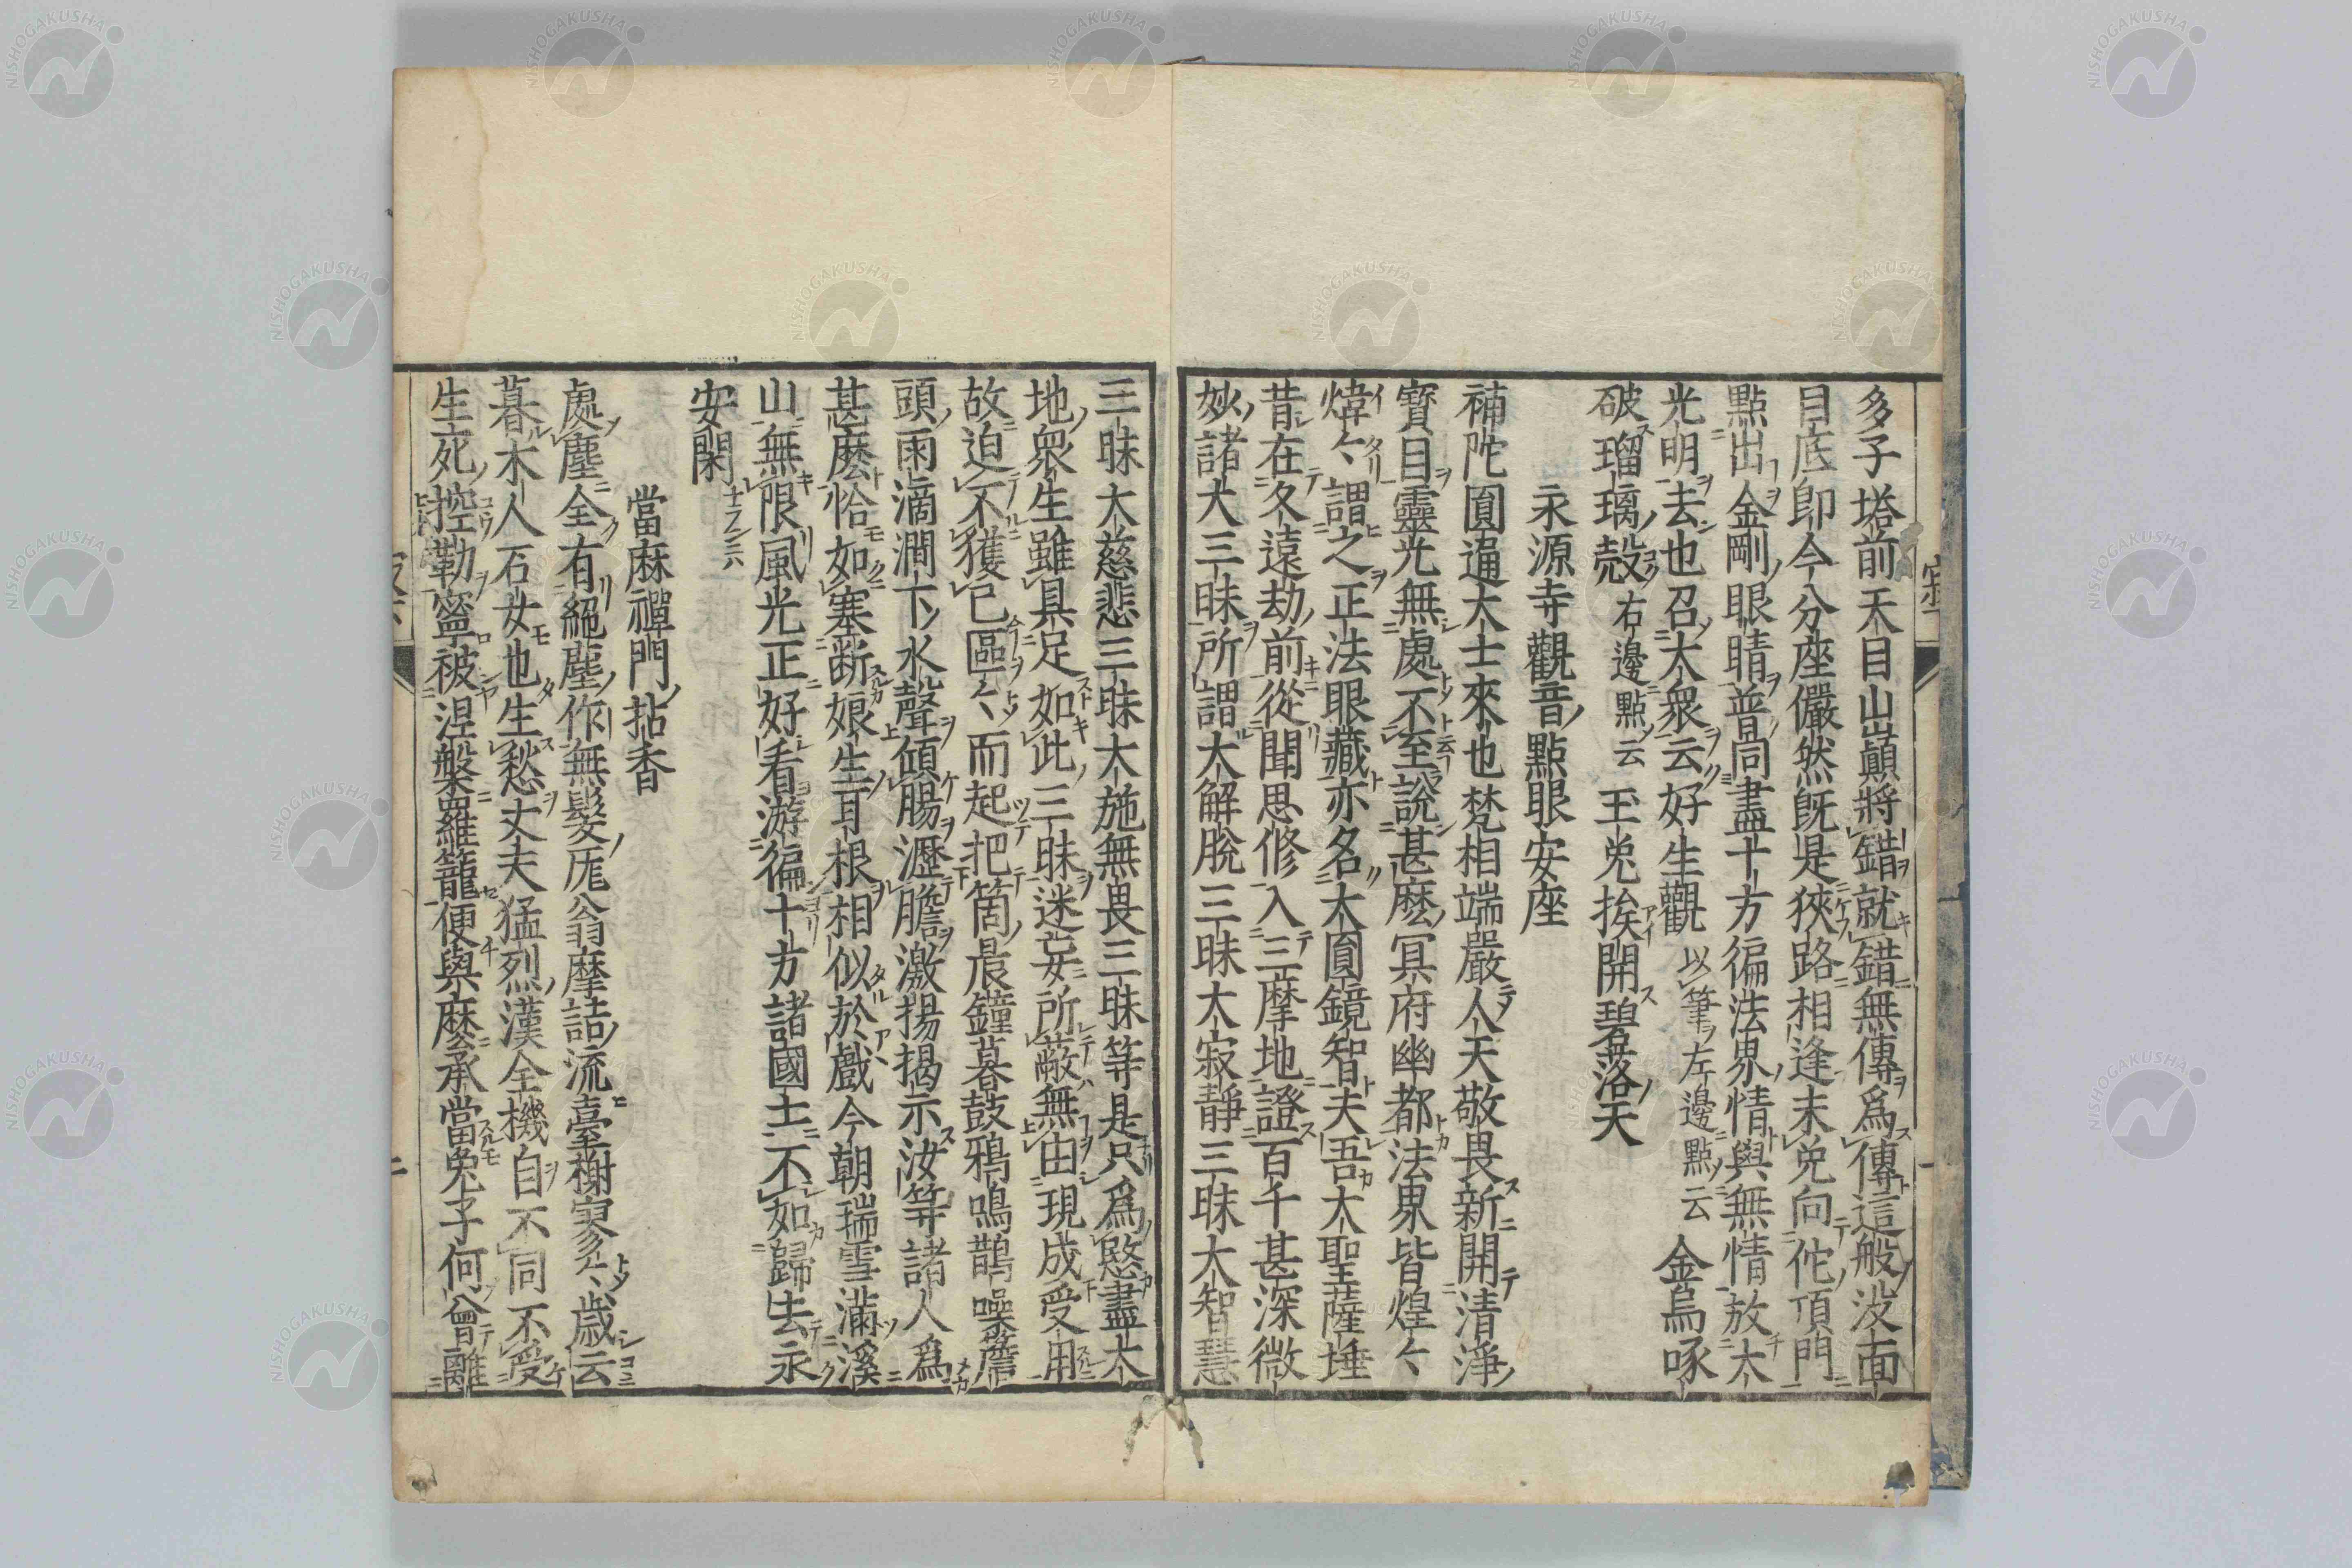 多子塔前天目山巔將錯就錯無傳爲傳這般沒面
目底即今分座儼然旣是狹路相逢未免向佗頂門
點出金剛眼睛普同盡十方徧法界情與無情放大
光明去也召大衆云好生觀以筆左邊點云金烏啄
破瑠璃殻右邊點云玉兎挨開碧落天
永源寺觀音點眼安座
補陀圓通大士來也梵相端嚴人天敬畏新開清淨
寳目靈光無處不至說甚麽冥府幽都法界皆煌〻
煒〻謂之正法眼藏亦名大圓鏡智夫吾大聖薩埵
昔在久遠劫前從聞思修入三摩地證百千甚深微
妙諸大三昧所謂大解脫三昧大寂靜三昧大智慧
三昧大慈悲三昧大施無畏三昧等是只爲愍盡大
地衆生雖具足如此三昧迷妄所蔽無由現成受用
故迫不獲已區〻而起把箇晨鐘暮鼓鴉鳴鵲噪簷
頭雨滴澗下水聲傾腸瀝膽激揚揭示汝等諸人爲
甚麽恰如塞断娘生耳根相似於戲今朝瑞雪滿溪
山無限風光正好看游徧十方諸國土不如歸去永
安閑
當麻禪門拈香
處塵全有絕塵作無髮厖翁摩詰流臺榭寥〻歳云
暮木人石女也生愁丈夫猛烈漢全機自不同不受
生死控勒寧被涅槃羅籠便與麽承當兔子何曾離